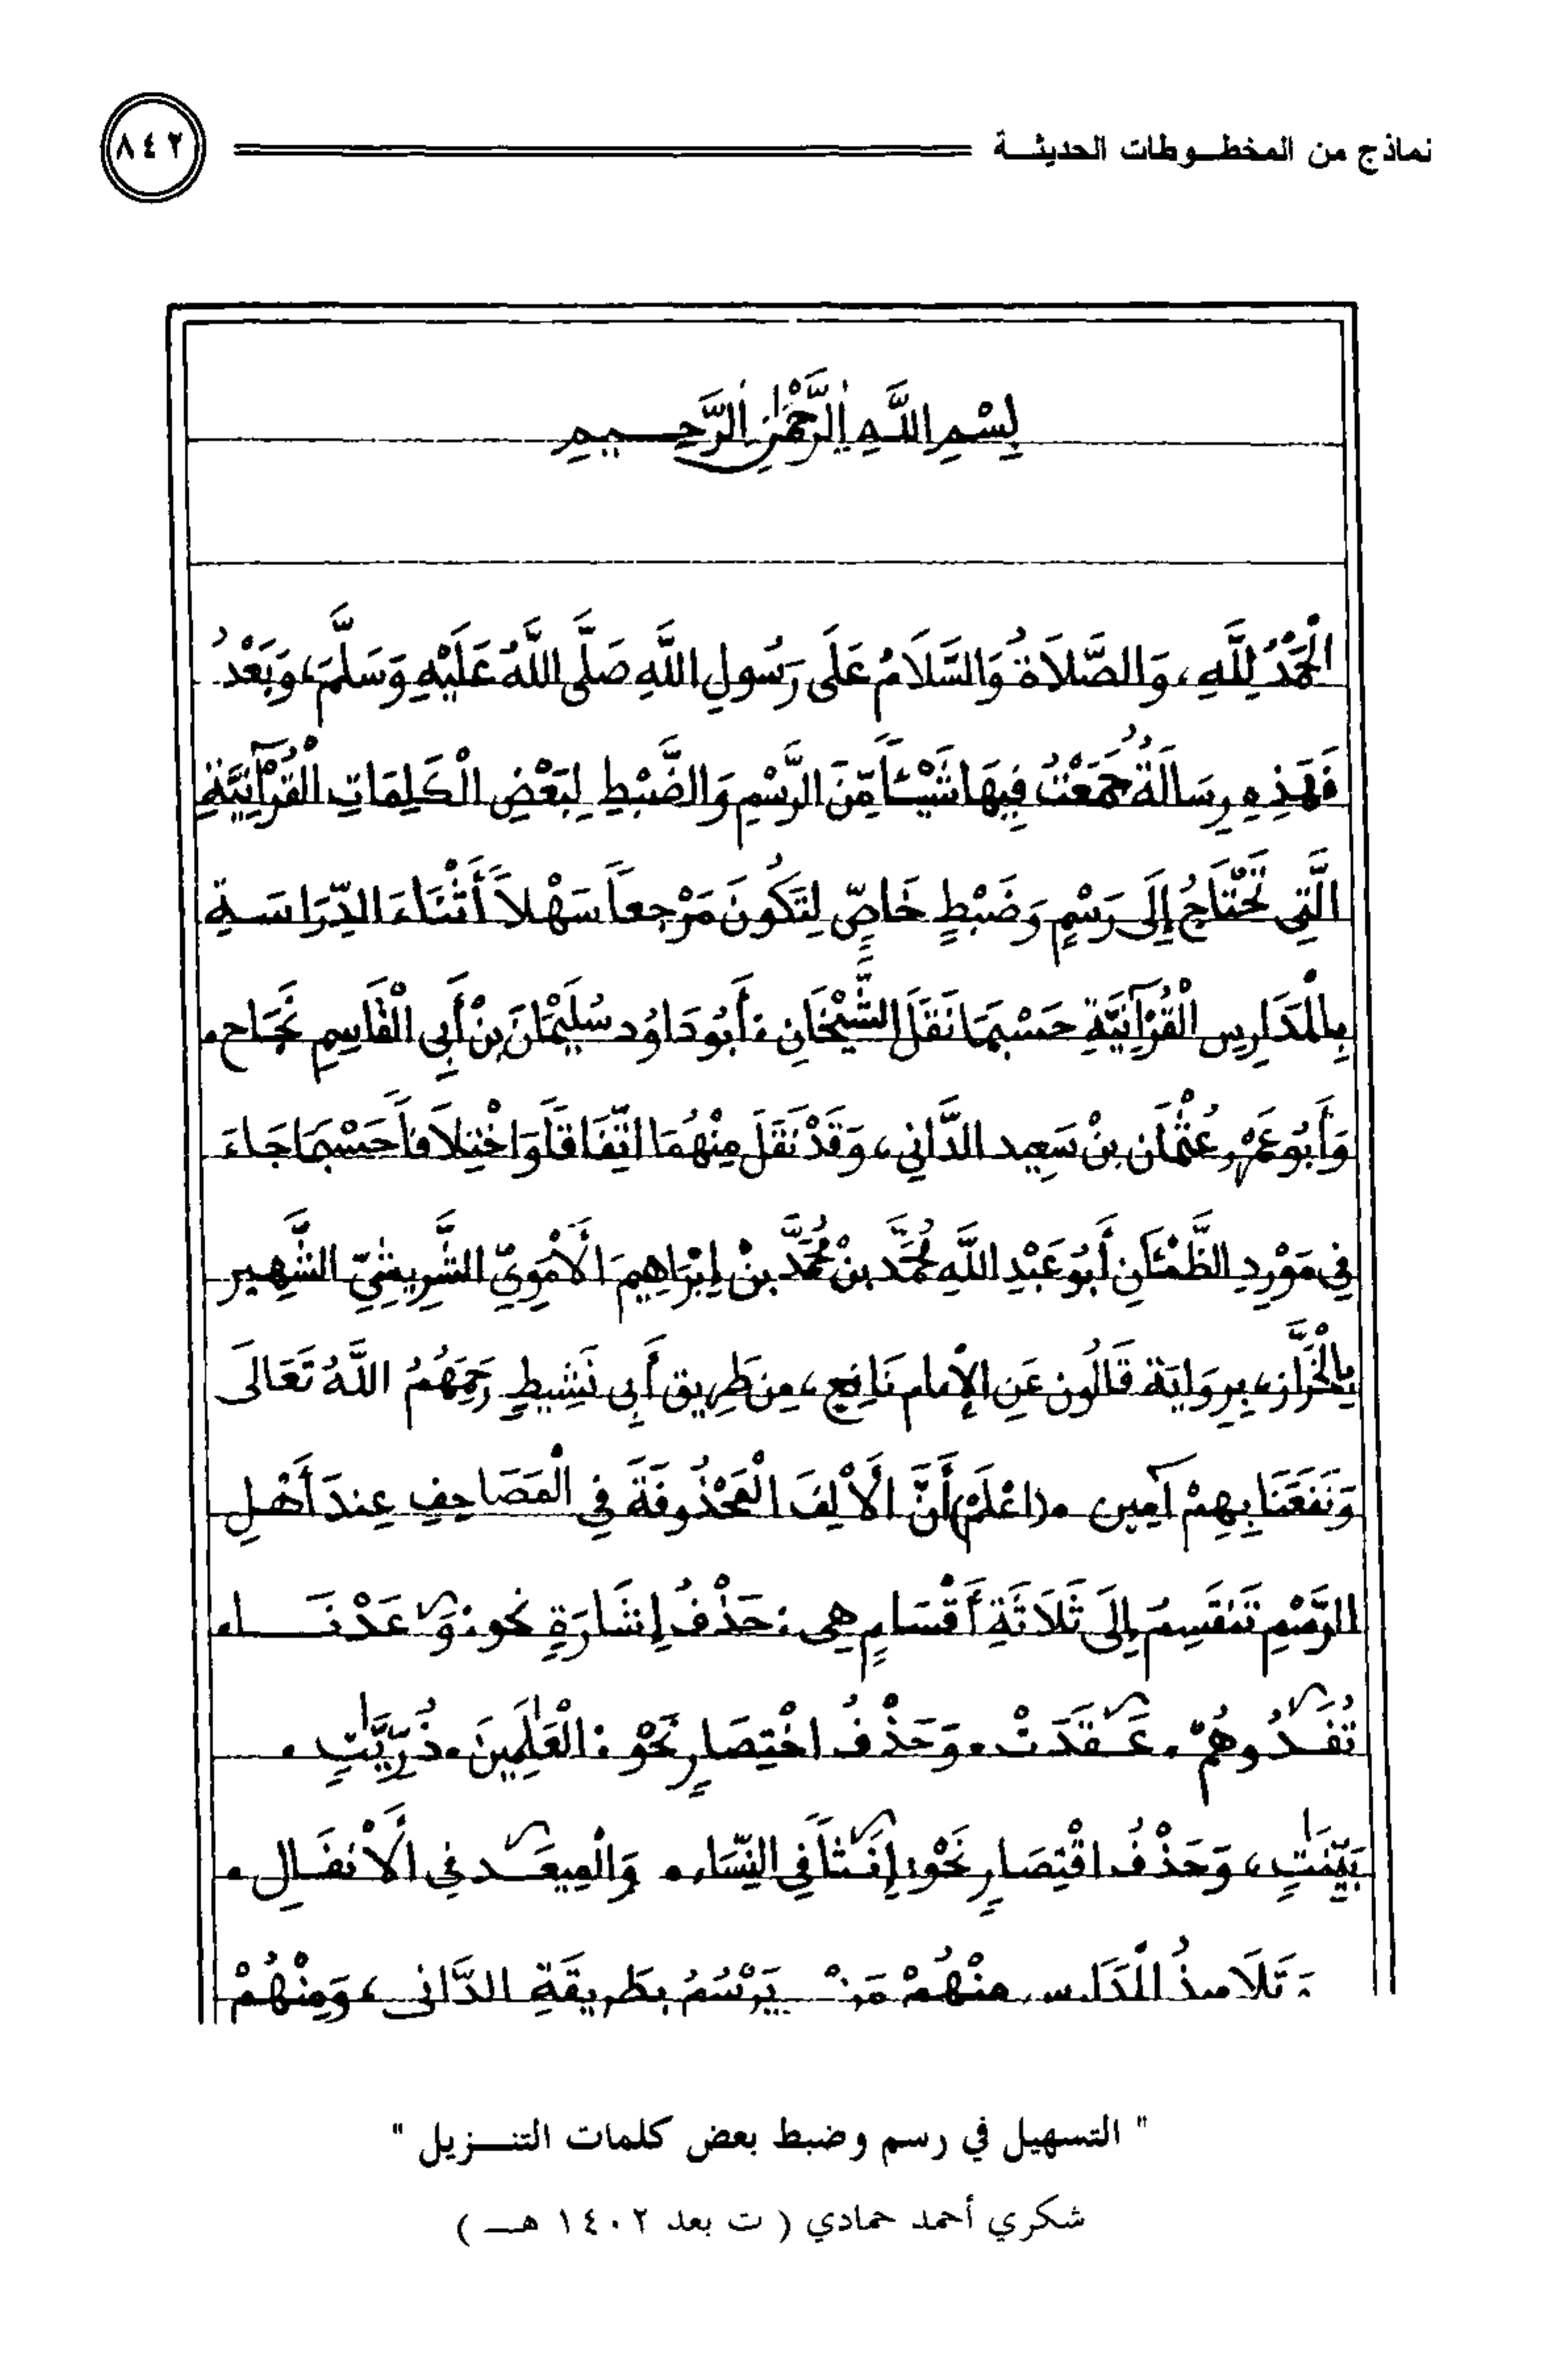 نماذج من المخطـوطات الحديثـة
٨٤٢
بِسْمِ اللَّـهِ الرَّحْمَٰنِ الرَّحِـــيمِ
الْحَمْدُ لِلَّهِ، وَالصَّلَاةُ وَالسَّلَامُ عَلَى رَسُولِ اللَّهِ صَلَّى اللَّهُ عَلَيْهِ وَسَلَّمَ، وَبَعْدُ
فَهَذِهِ رِسَالَةٌ جَمَعْتُ فِيهَا شَيْـئاً مِّنَ الرَّسْمِ وَالضَّبْطِ لِبَعْضِ الْكَلِمَاتِ الْقُرْآنِيَّةِ
الَّتِي تَحْتَاجُ إِلَى رَسْمٍ وَضَبْطٍ خَاصٍّ لِتَكُونَ مَرْجِعاً سَهْلاً أَثْنَاءَ الدِّرَاسَـةِ
بِالْمَدَارِسِ الْقُرْآنِيَّةِ حَسْبَمَا نَقَلَ الشَّيْخَانِ : أَبُو دَاوُد سُلَيْمَانَ بِنْ أَبِي الْقَاسِمِ نَجَـاح.
وَأَبُو عَمْرٍو عُثْمَان بِنْ سَعِيد الدَّانِي، وَقَدْ نَقَلَ مِنْهُمَا اتِّفَاقاً وَاخْتِلَافاً حَسْبَمَا جَاءَ
فِي مَوْرِدِ الظَّمْـَٔانِ أَبُو عَبْدِ اللَّهِ مُحَمَّد بِنْ مُحَمَّد بِنْ إِبْرَاهِيمَ الْأُمَوِيِّ الشَّرِيشِيِّ الشَّهِير
بِالْخَرَّاز، بِرِوَايَة قَالُون عَنِ الْإِمَام نَافِعٍ، مِن طَرِيق أَبِي نَشِيطٍ رَحِمَهُمُ اللَّهُ تَعَالَى
وَنَفَعَنَا بِهِمْ آمِين . (اعْلَمْ) أَنَّ الْأَلِفَ الْمَحْذُوفَةَ فِي الْمَصَاحِفِ عِندَ أَهْـلِ
الرَّسْمِ تَنقَسِمُ إِلَى ثَلَاثَةِ أَقْسَامٍ هِي : حَذْفُ إِشَارَةٍ نحو : وَٰعَدْنَـــا.
تُفَـٰدُوهُمْ . عَـٰقَدَتْ . وَحَذْفُ اخْتِصَارٍ نَحْو : الْعَٰلَمِينَ . ذُرِّيَّٰتٍ .
بَيِّنَٰتٍ، وَحَذْفُ اقْتِصَارٍ نَحْو: إِنَـٰثاً فِي النِّسَاء . وَالْمِيعَـٰدِ فِي الْأَنفَـالِ .
وَتَلَامِيذُ الْمَدَارِس مِنْهُمْ مَنْ يَرْسُمُ بِطَرِيقَةِ الدَّانِي، وَمِنْهُمْ
" التسهيل في رسم وضبط بعض كلمات التنـــزيل "
شكري أحمد حمادي ( ت بعد ١٤٠٢ هـــ )